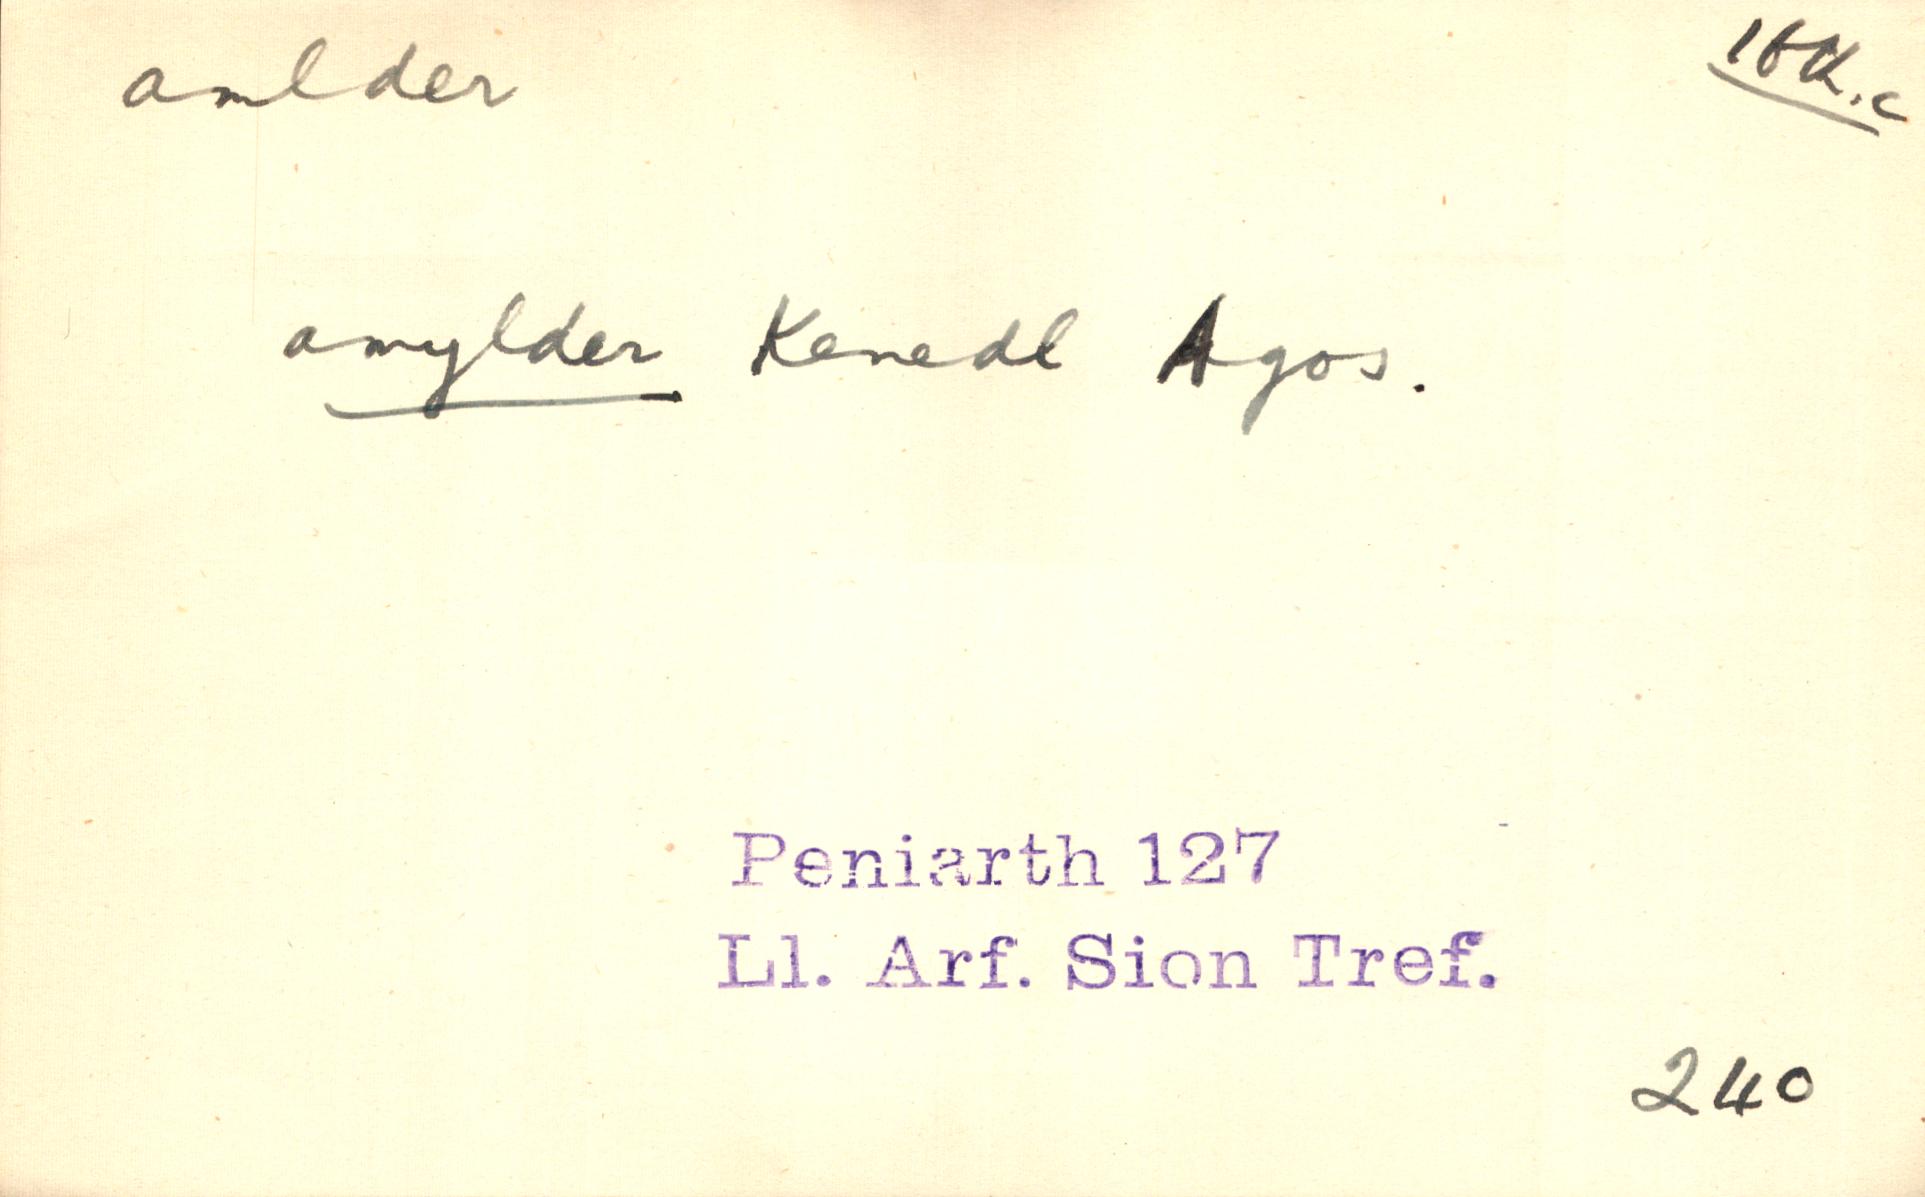 amlder
16th.c
amylder Kenedl Agos.
Peniarth 127
Ll. Arf. Sion Tref.
240